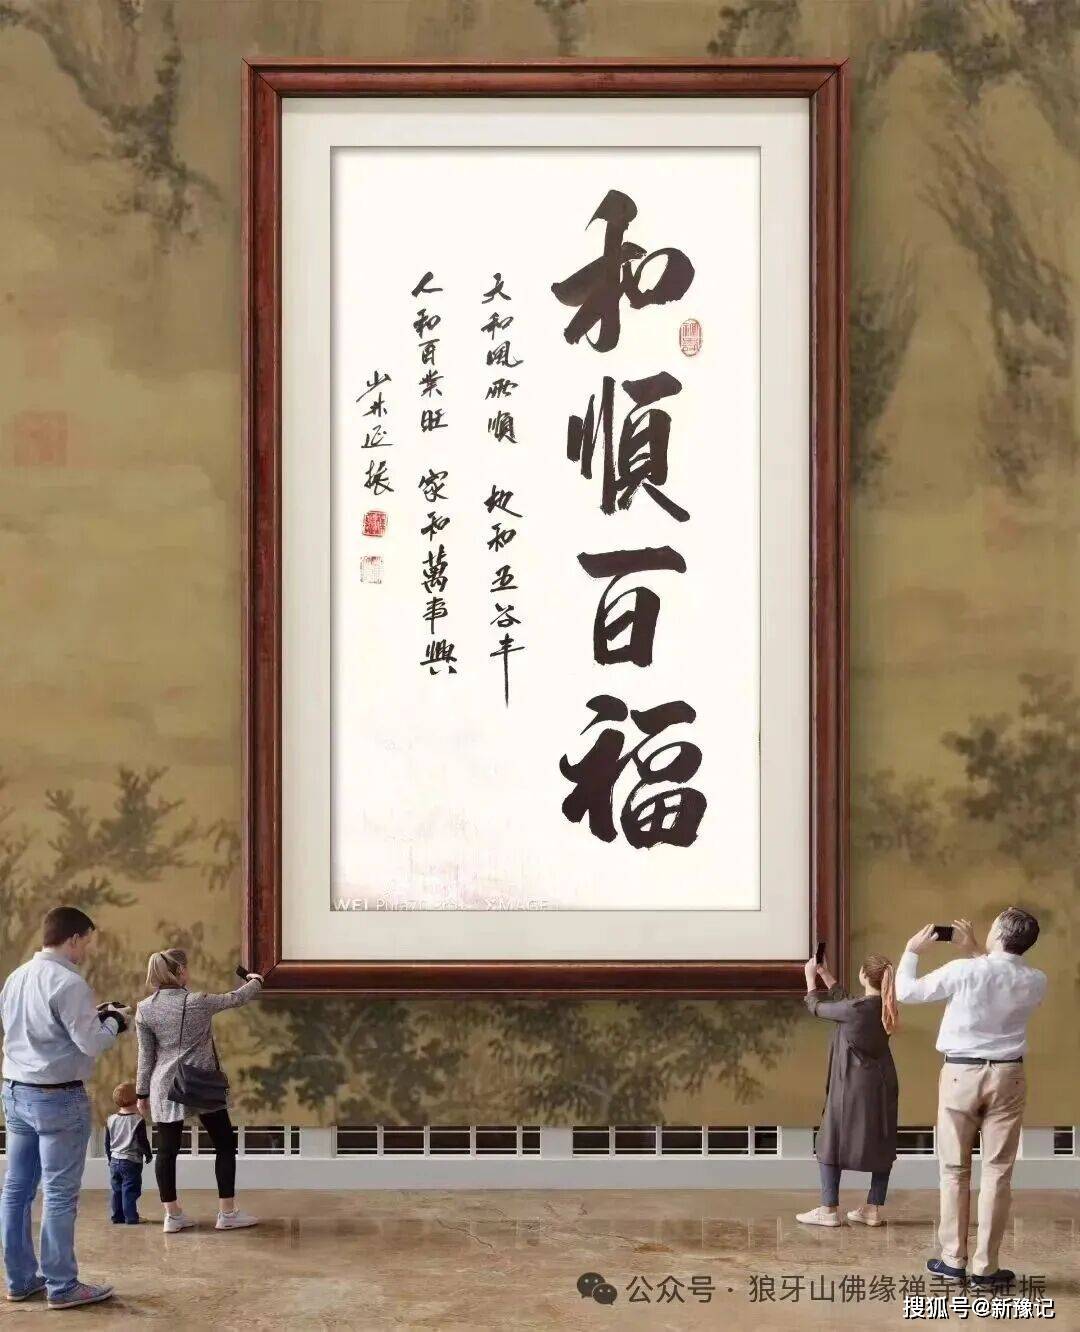 和順百福
天和風雨順 地和五谷丰
人和百業旺 家和萬事興
少林延振
WEI Pura70 XMAGE
公众号 · 狼牙山佛缘禅寺释延振
搜狐号@新豫记